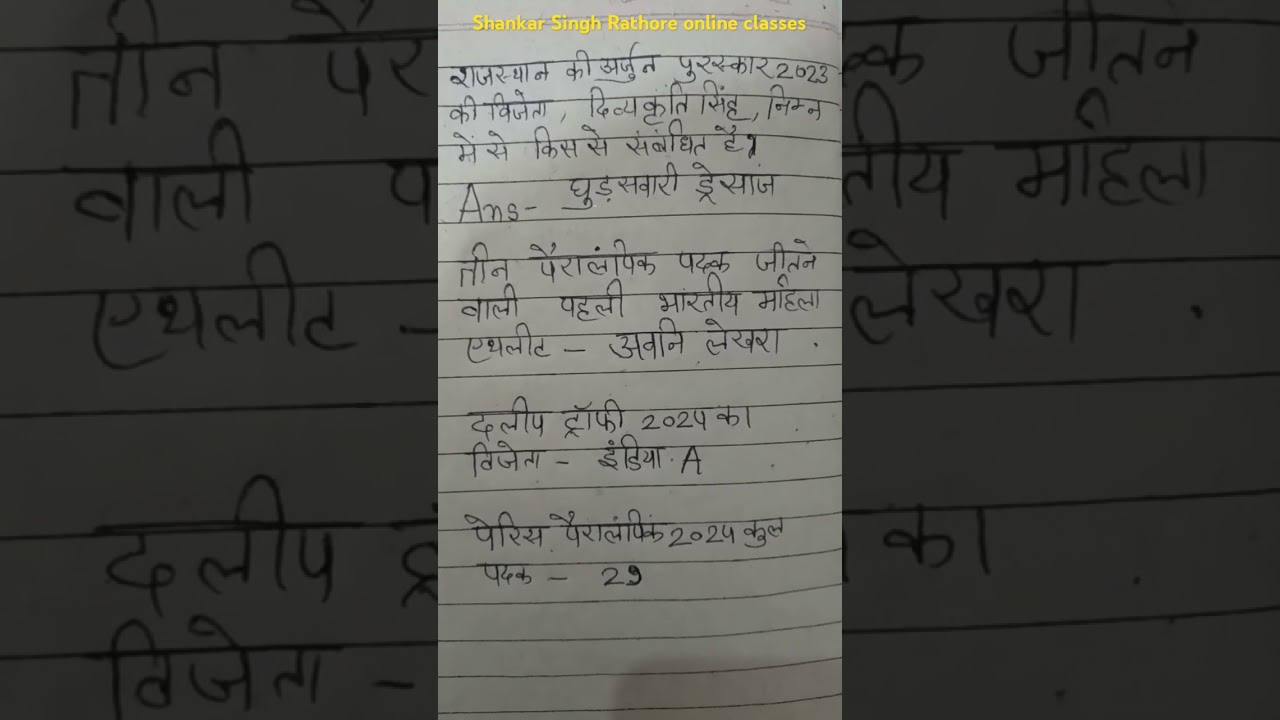 Shankar Singh Rathore online classes
राजस्थान की अर्जुन पुरस्कार 2023
की विजेता, दिव्यकृति सिंह, निम्न
में से किस से संबंधित है।
Ans- घुड़सवारी ड्रेसाज
तीन पैरालंपिक पदक जीतने
वाली पहली भारतीय महिला
एथलीट - अवनि लेखरा .
दलीप ट्रॉफी 2024 का
विजेता - इंडिया A
पेरिस पैरालंपिक 2024 कुल
पदक - 29